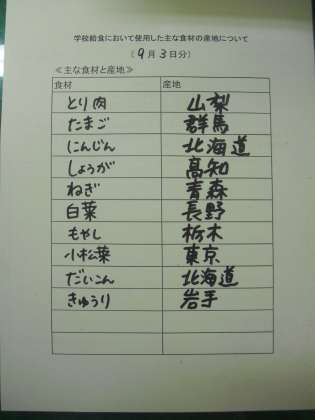 学校給食において使用した主な食材の産地について
(9月3日分)
≪主な食材と産地≫
食材 産地
とり肉 山梨
たまご 群馬
にんじん 北海道
しょうが 高知
ねぎ 青森
白菜 長野
もやし 栃木
小松菜 東京
だいこん 北海道
きゅうり 岩手